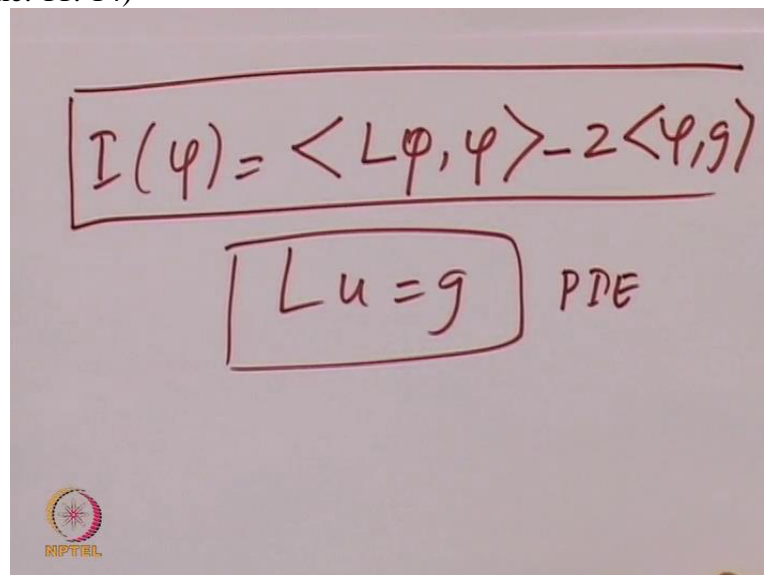 I(φ) = <Lφ, φ> - 2<φ, g>
Lu = g PDE
NPTEL